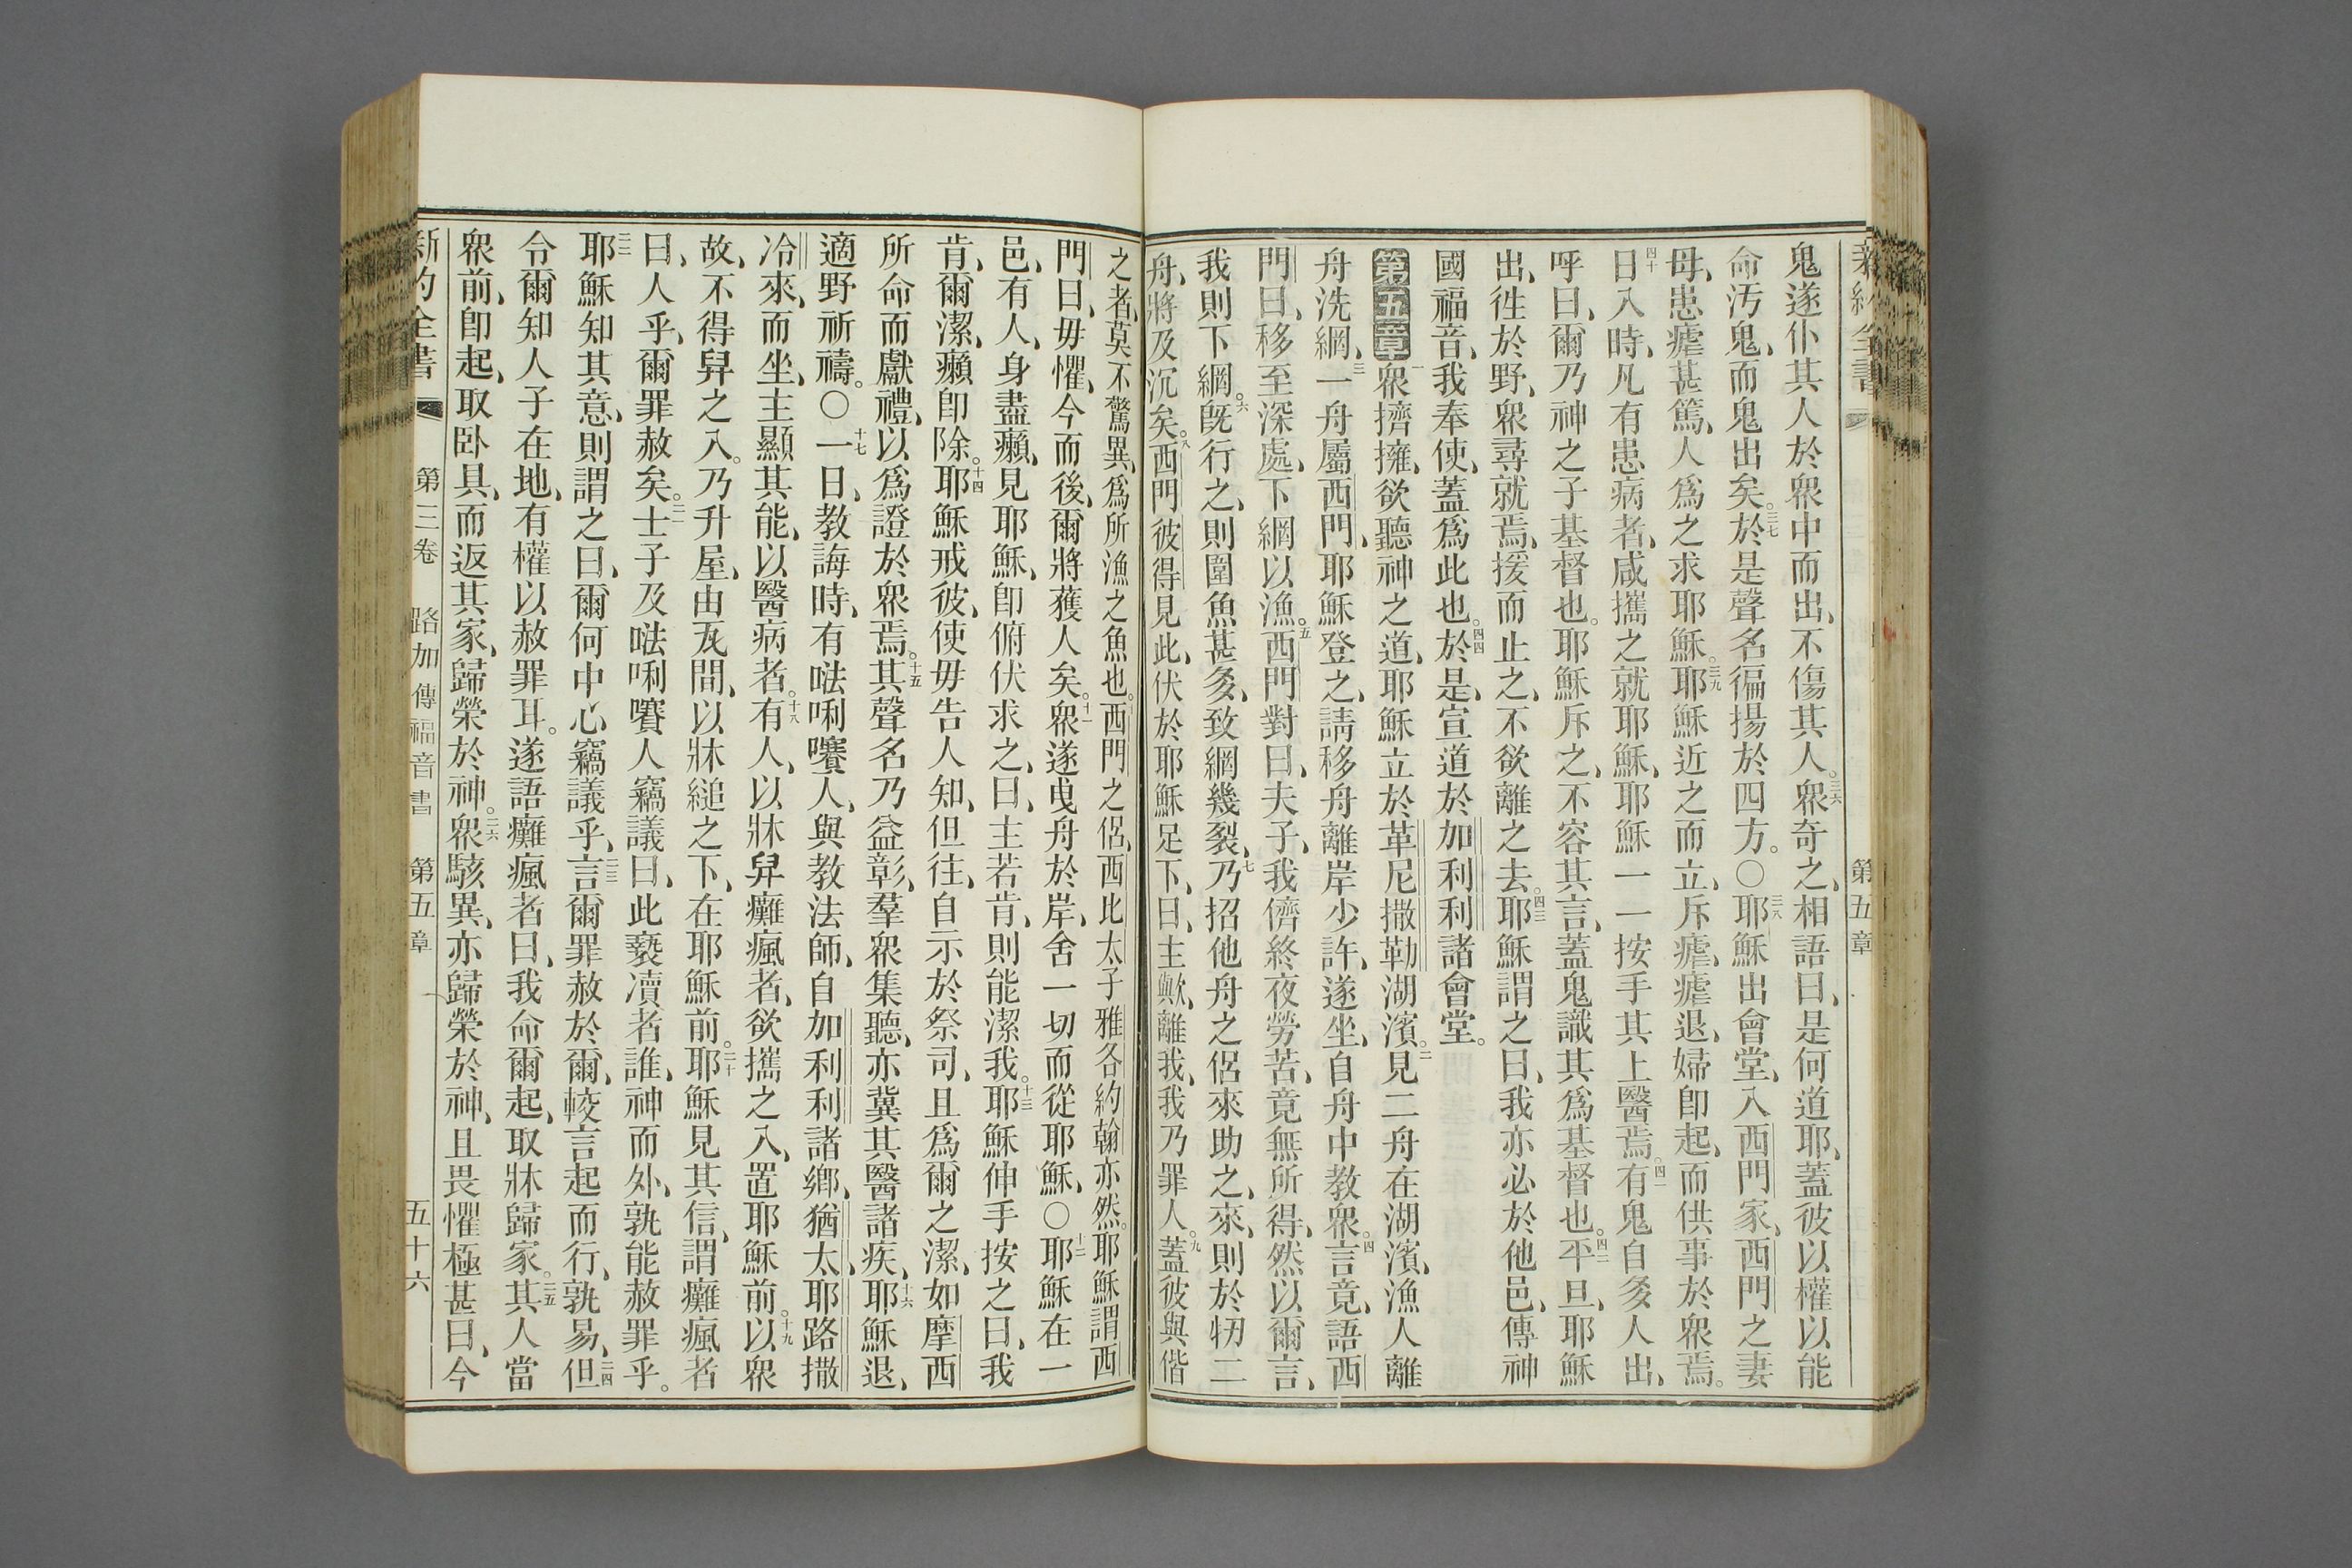 新約全書
第五章
鬼遂仆其人於衆中而出、不傷其人。三六衆奇之、相語曰、是何道耶、蓋彼以權以能
命汚鬼、而鬼出矣。三七於是聲名徧揚於四方。〇三八耶穌出會堂、入西門家、西門之妻
母、患瘧甚篤、人爲之求耶穌。三九耶穌近之而立、斥瘧、瘧退、婦卽起、而供事於衆焉。
四十日入時、凡有患病者、咸攜之就耶穌、耶穌一一按手其上醫焉。四一有鬼自多人出、
呼曰、爾乃神之子基督也。耶穌斥之、不容其言、蓋鬼識其爲基督也。四二平旦、耶穌
出、徃於野、衆尋就焉、援而止之、不欲離之去。四三耶穌謂之曰、我亦必於他邑、傳神
國福音、我奉使、蓋爲此也。四四於是、宣道於加利利諸會堂。
第五章一衆擠擁、欲聽神之道、耶穌立於革尼撒勒湖濱。二見二舟在湖濱、漁人離
舟洗網、三一舟屬西門、耶穌登之、請移舟離岸少許、遂坐、自舟中教衆。四言竟、語西
門曰、移至深處、下網以漁。五西門對曰、夫子、我儕終夜勞苦、竟無所得、然以爾言、
我則下網。六旣行之、則圍魚甚多、致網幾裂、七乃招他舟之侶來助之、來、則於牣二
舟、將及沉矣。八西門彼得見此、伏於耶穌足下、曰、主歟、離我、我乃罪人。九蓋彼與偕
之者、莫不驚異、爲所漁之魚也。十西門之侶、西比太子雅各約翰亦然。耶穌謂西
門曰、毋懼、今而後、爾將獲人矣。十一衆遂曳舟於岸、舍一切而從耶穌、〇十二耶穌在一
邑、有人、身盡癩、見耶穌、卽俯伏求之、曰、主若肯、則能潔我。十三耶穌伸手按之曰、我
肯、爾潔、癩卽除。十四耶穌戒彼、使毋告人知、但往、自示於祭司、且爲爾之潔、如摩西
所命而獻禮、以爲證於衆焉。十五其聲名乃益彰、羣衆集聽、亦冀其醫諸疾、十六耶穌退、
適野祈禱。〇十七一日、教誨時、有𠵽唎㘔人、與教法師、自加利利諸鄉、猶太、耶路撒
冷來、而坐、主顯其能、以醫病者。十八有人、以牀舁癱瘋者、欲攜之入、置耶穌前。十九以衆
故、不得舁之入。乃升屋、由瓦間、以牀縋之下、在耶穌前。二十耶穌見其信、謂癱瘋者
曰、人乎、爾罪赦矣。二一士子及𠵽唎㘔人竊議曰、此褻瀆者誰、神而外、孰能赦罪乎。
二二耶穌知其意、則謂之曰、爾何中心竊議乎、二三言爾罪赦於爾、較言起而行、孰易、二四但
令爾知人子在地、有權以赦罪耳。遂語癱瘋者曰、我命爾起、取牀歸家。二五其人當
衆前、卽起、取卧具、而返其家、歸榮於神。二六衆駭異、亦歸榮於神、且畏懼極甚曰、今
新約全書 第三卷 路加傳福音書 第五章 五十六